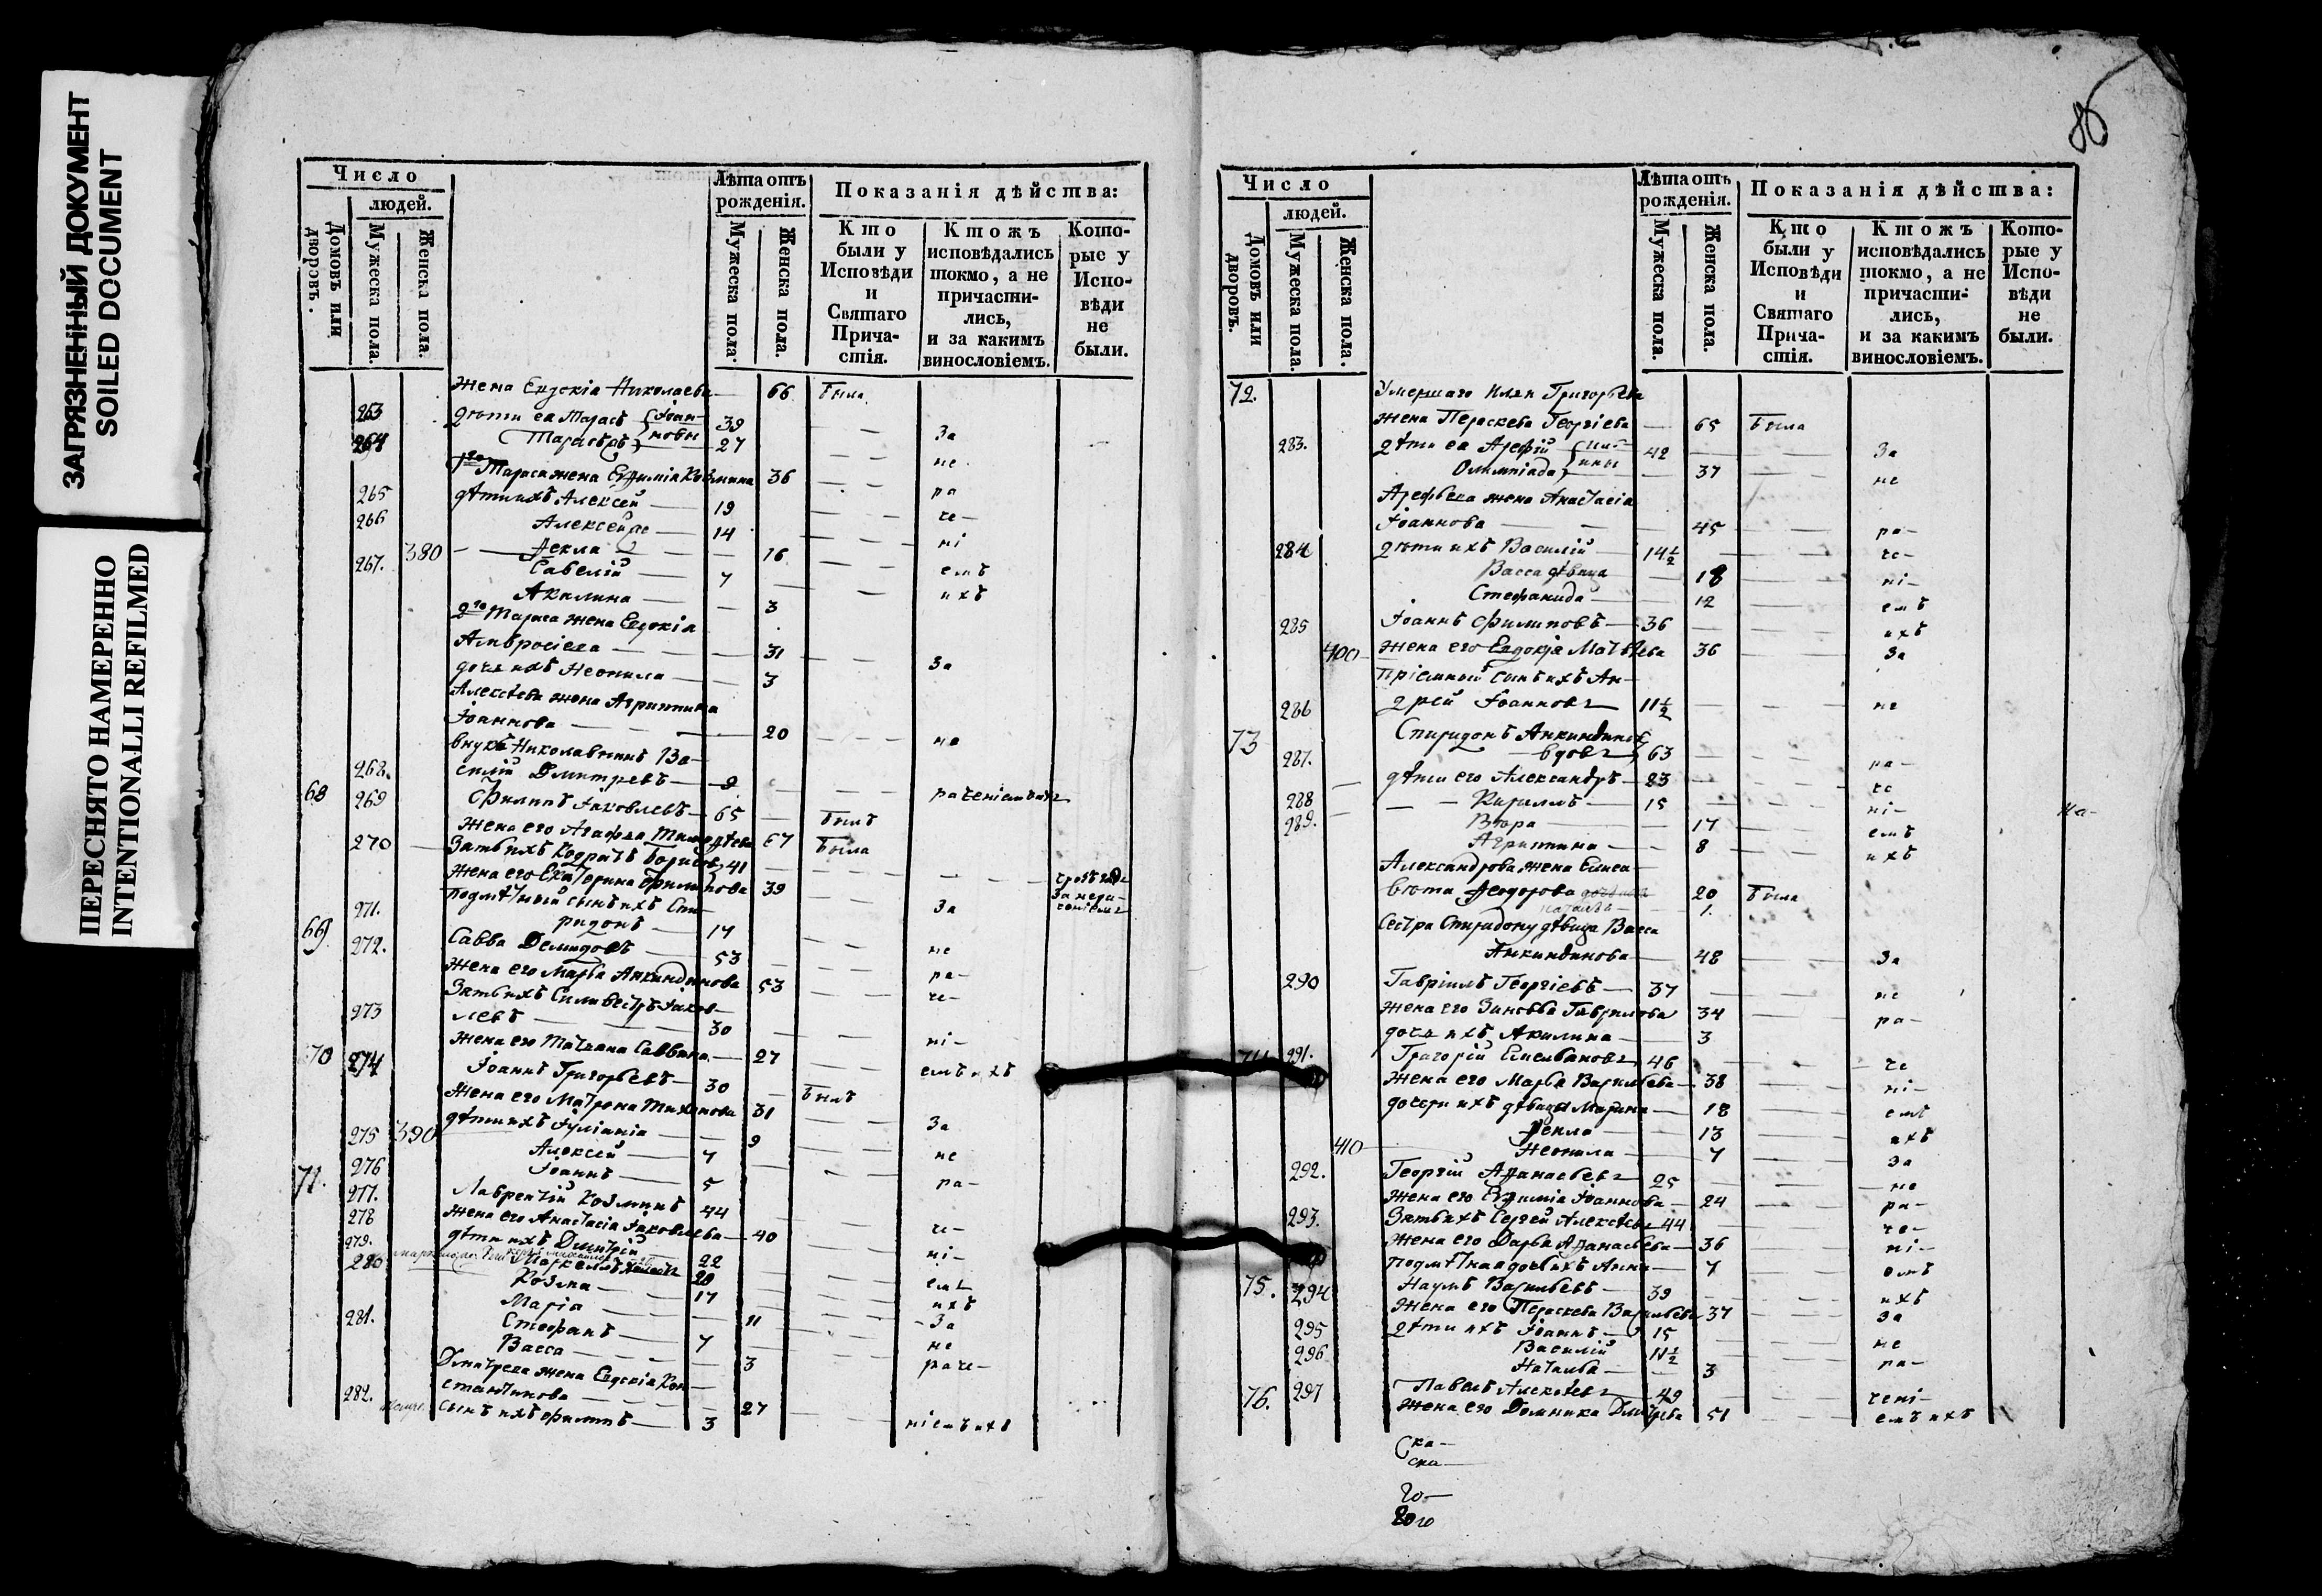 ЗАГРЯЗНЕННЫЙ ДОКУМЕНТ
SOILED DOCUMENT
ПЕРЕСНЯТО НАМЕРЕННО
INTENTIONALLI REFILMED
Число
людей.
Домовъ или дворовъ.
Мужеска пола.
Женска пола.
Лѣта отъ рожденія.
Мужеска пола.
Женска пола.
Показанія дѣйства:
Кто были у Исповѣди и Святаго Прича-стія.
Ктожъ исповѣдались токмо, а не причасти-лись, и за какимъ винословіемъ.
Кото-рые у Испо-вѣди не были.
жена Евдокія Николаева 66 была
263 дѣти еа Тарасъ Іоан- 39
264 Тарасъ новы 27 За
1го Тараса жена Евфимія Козмина 36 не
265 дѣти ихъ Алексей 19 ра
266 Алексей 14 че-
380 Ѳекла 16 ні
267. Савелій 7 емъ
Акилина 3 ихъ
2го Тараса жена Евдокіа
Амвросіева 31
дочь ихъ Неонила 3 За
Алексѣева жена Агрипина
Іоаннова 20
внукъ Николавынъ Ва- не
268. силій Дмитревъ 9
68 269 Филипъ Іаковлевъ 65 былъ
жена его Агафья 67 была
270 Зять ихъ Кодратъ 41
жена его Екатерина Филипова 39
271. сынъ ихъ Спи- За
ридонъ 17
69 272. Савва Демидовъ 53 не
жена его Марѳа Анкиндинова 53 ра-
Зять ихъ Силивестръ Іаков- че-
273 левъ 30
жена его Татіана Саввина 27 ні-
70 274 Іоаннъ Григорьевъ 30 былъ емъ ихъ
жена его Матрона Тихонова 31
390 дѣти ихъ Іуліанія 9 За
275 Алексей 7 не
276 Іоаннъ 5 ра-
71. 277. Лаврентій Козминъ 44
278 жена его Анастасіа Іаковлева 40 че-
279. дѣти ихъ Дмитрій 22 ні-
280 Козма 17 емъ
Маріа 11 ихъ
281. Стефанъ 7 За
Васса 3 не
Дмитрева жена Евдокіа Кон- раче-
стантинова 27
282. сынъ ихъ Филипъ 3 ніемъ ихъ
86
Число
людей.
Домовъ или дворовъ.
Мужеска пола.
Женска пола.
Лѣта отъ рожденія.
Мужеска пола.
Женска пола.
Показанія дѣйства:
Кто были у Исповѣди и Святаго Прича-стія.
Ктожъ исповѣдались токмо, а не причасти-лись, и за какимъ винословіемъ.
Кото-рые у Испо-вѣди не были.
72. Умершаго Ильи Григорьева
жена Пераскева Георгіева 65 была
283. дѣти еа Арефій Иль- 42 За
Олимпіада ины 37 не
Арефьева жена Анастасіа
Іоаннова 45 ра-
284 дѣти ихъ Василій 14½ че-
Васса дѣвица 18 ні-
Стефанида 12 емъ
285 Іоаннъ Филиповъ 36 ихъ
400 жена его Евдокіа Матвѣева 36 За
Пріемный сынъ ихъ Ан-
286 дрей Іоанновъ 11½ не
73 Спиридонъ Анкиндинов
287. вдовъ 63 ра-
дѣти его Александръ 23 че
288 Кириллъ 15 ні-
289. Вѣра 17 емъ
Агрипина 8 ихъ
Александрова жена Елиса-
вѣта Ѳеодорова 20 была
1.
Сестра Спиридону дѣвица Васса
Анкиндинова 48 За
290 Гавріилъ Георгіевъ 37 не
жена его Зиновья Гаврилова 34 ра-
дочь ихъ Акилина 3
291. Григорій Емельяновъ 46 че
жена его Марѳа Васильева 38 ні-
дочери ихъ дѣвицы Марина 18 емъ
Ѳекла 13 ихъ
410 Неонила 7 За
292. Георгій Аѳанасьевъ 25 не
жена его Евфимія Іоаннова 24 ра-
293. Зять ихъ Сергей Алексѣевъ 44 че-
жена его Дарья Аѳанасьева 36 ні-
дочь ихъ Анна 7 емъ
75. 294 Наумъ Васильевъ 39 ихъ
жена его Пераскева Васильева 37 За
295 дѣти ихъ Іоаннъ 15 не
296 Василій 11½ ра-
Наталья 3
76. 297 Павелъ Алексѣевъ 49 чені-
жена его Домника Дмитрева 51 емъ ихъ